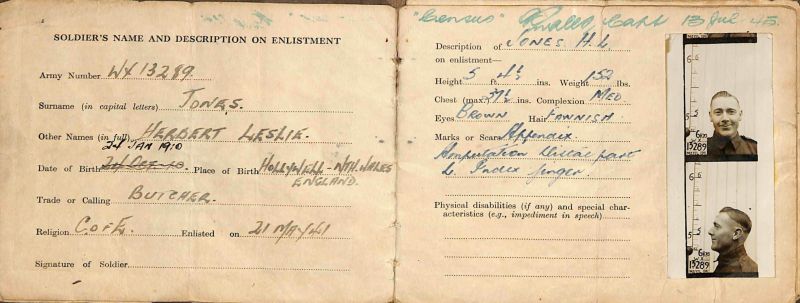 SOLDIER'S NAME AND DESCRIPTION ON ENLISTMENT
Army Number WX13289.
Surname (in capital letters) JONES.
Other Names (in full) HERBERT LESLIE.
24 JAN 1910
Date of Birth Place of Birth HOLLYWELL - NTH. WALES
ENGLAND.
Trade or Calling BUTCHER.
Religion C of E. Enlisted on 21 MAY 41
Signature of Soldier
"Census" Capt 13 Jul 43.
Description of JONES H. L
on enlistment—
Height 5 ft. 4½ ins. Weight 152 lbs.
Chest (max.) ins. Complexion MED
Eyes BROWN Hair FAWNISH
Marks or Scars Appendix
Amputation distal part
L. Index finger.
Physical disabilities (if any) and special char-
acteristics (e.g., impediment in speech)
13289
13289